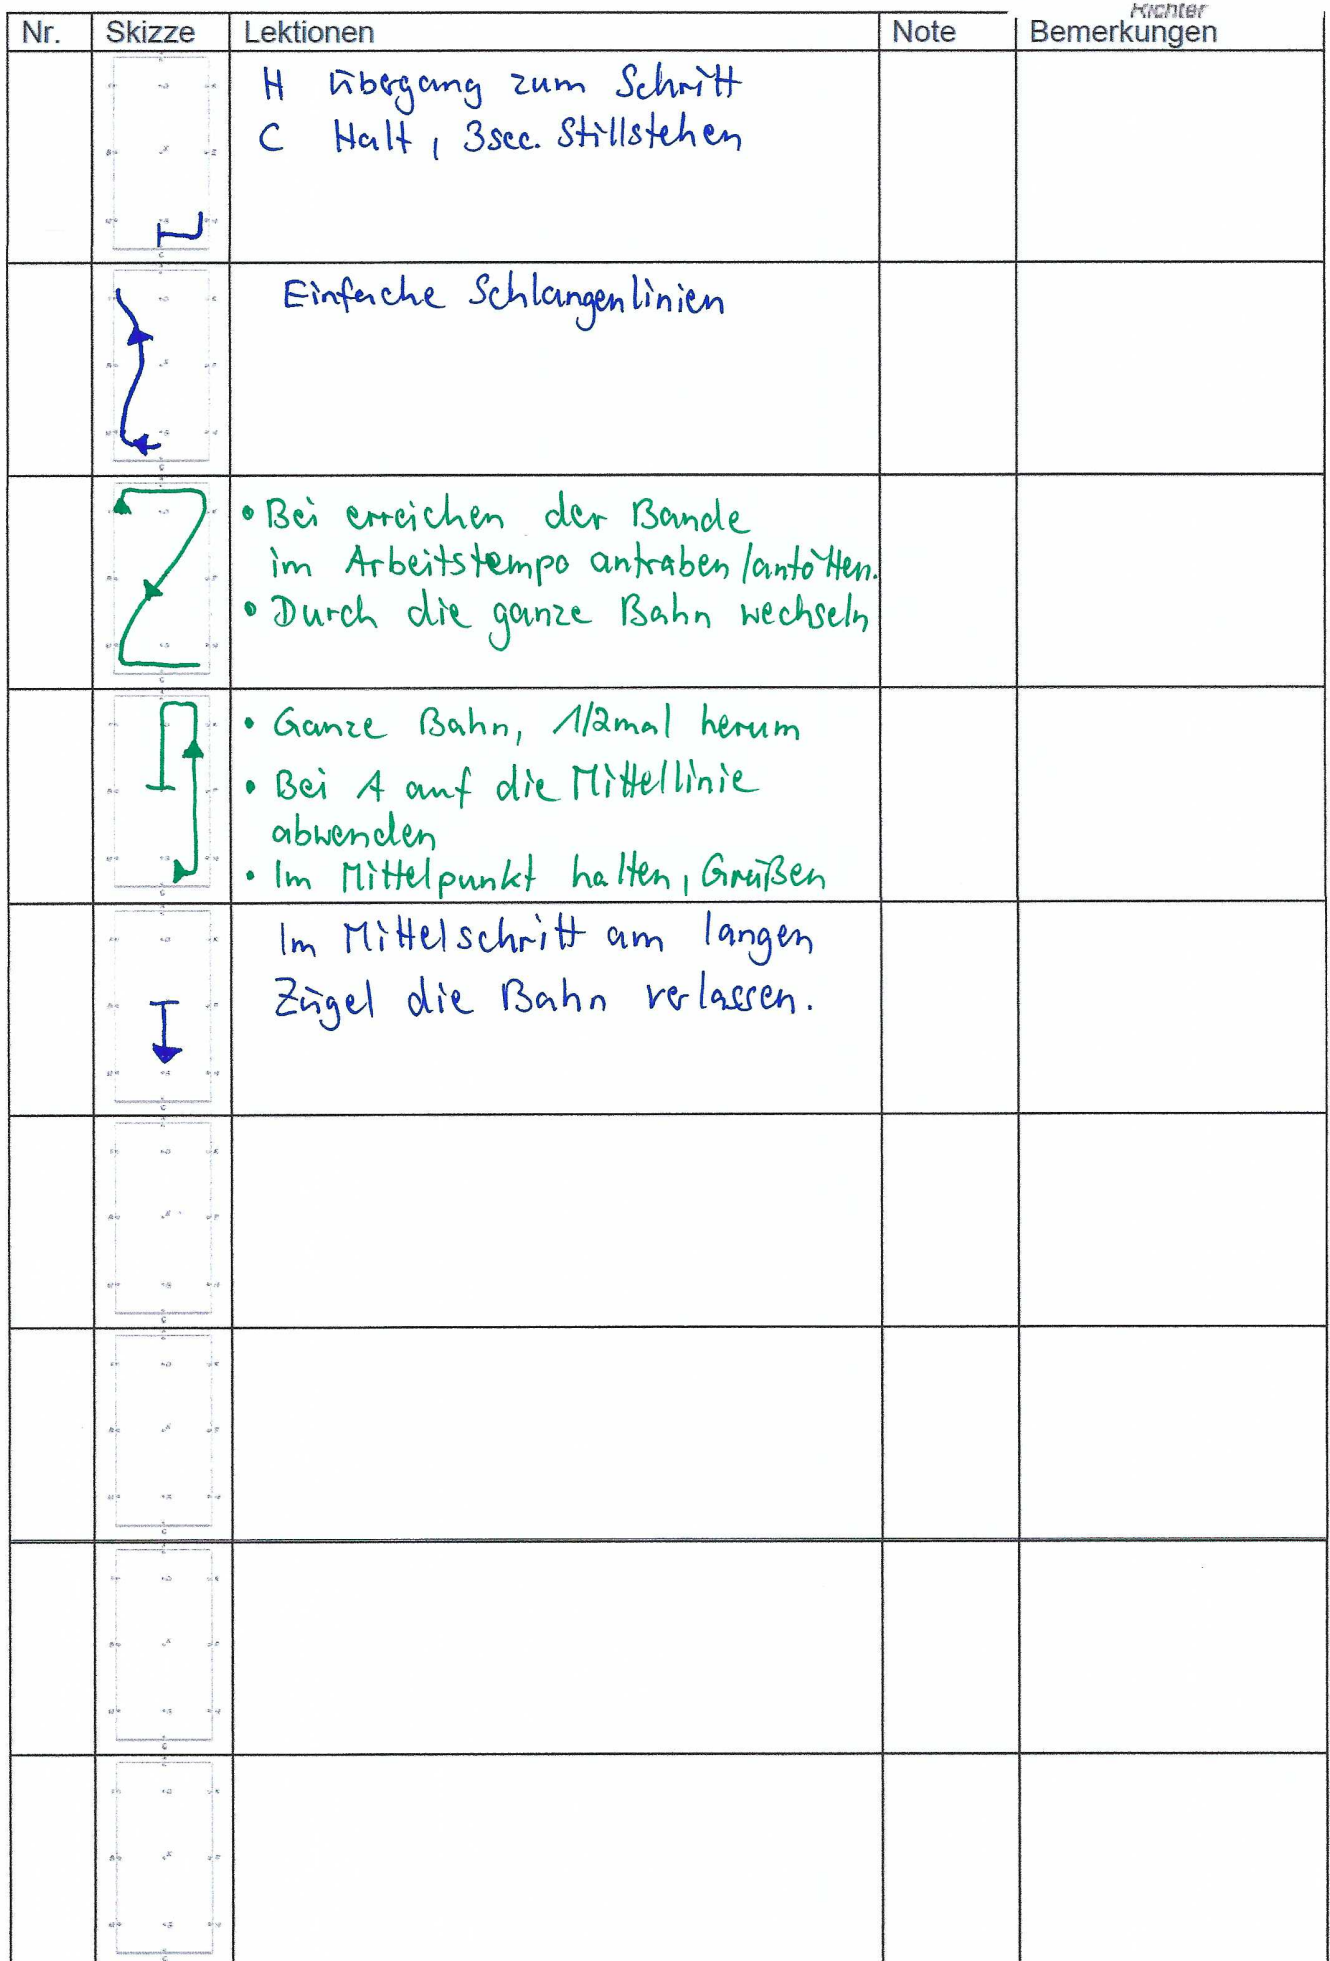 Richter
Nr. Skizze Lektionen Note Bemerkungen
H Übergang zum Schritt
C Halt, 3sec. Stillstehen
Einfache Schlangenlinien
• Bei erreichen der Bande
im Arbeitstempo antraben/antölten.
• Durch die ganze Bahn wechseln
• Ganze Bahn, 1/2mal herum
• Bei A auf die Mittellinie
abwenden
• Im Mittelpunkt halten, Grüßen
Im Mittelschritt am langen
Zügel die Bahn verlassen.